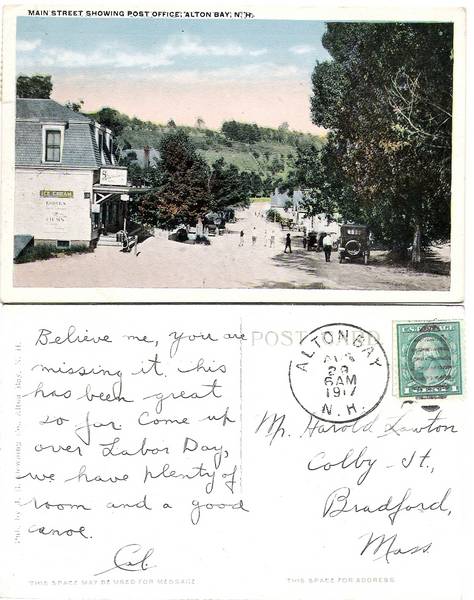 MAIN STREET SHOWING POST OFFICE, ALTON BAY, N. H.
ICE CREAM
Believe me, you are
missing it. This
has been great
so far Come up
over Labor Day,
we have plenty of
room and a good
canoe.
Cal.
THIS SPACE MAY BE USED FOR MESSAGE
POST CARD
ALTON BAY
AUG
29
6 AM
1917
N. H.
Mr. Harold Lawton
Colby St.,
Bradford,
Mass.
THIS SPACE FOR ADDRESS